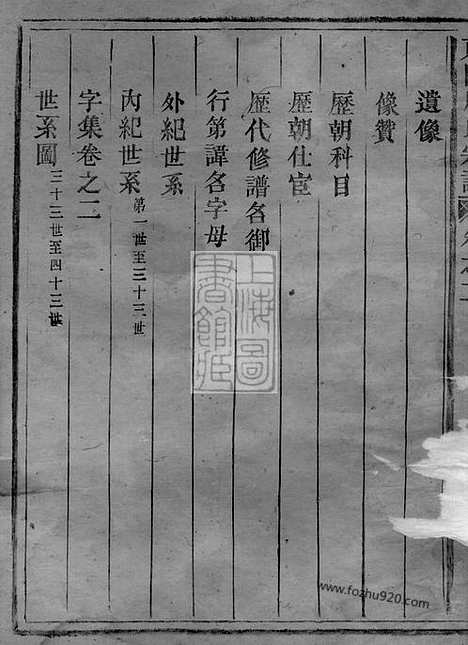 遺像
像贊
歷朝科目
歷朝仕宦
歷代修譜名御
行第諱名字母
外紀世系
內紀世系 第一世至三十三世
字集卷之二
世系圖 三十三世至四十三世
上海圖書館藏
www.fozhu920.com